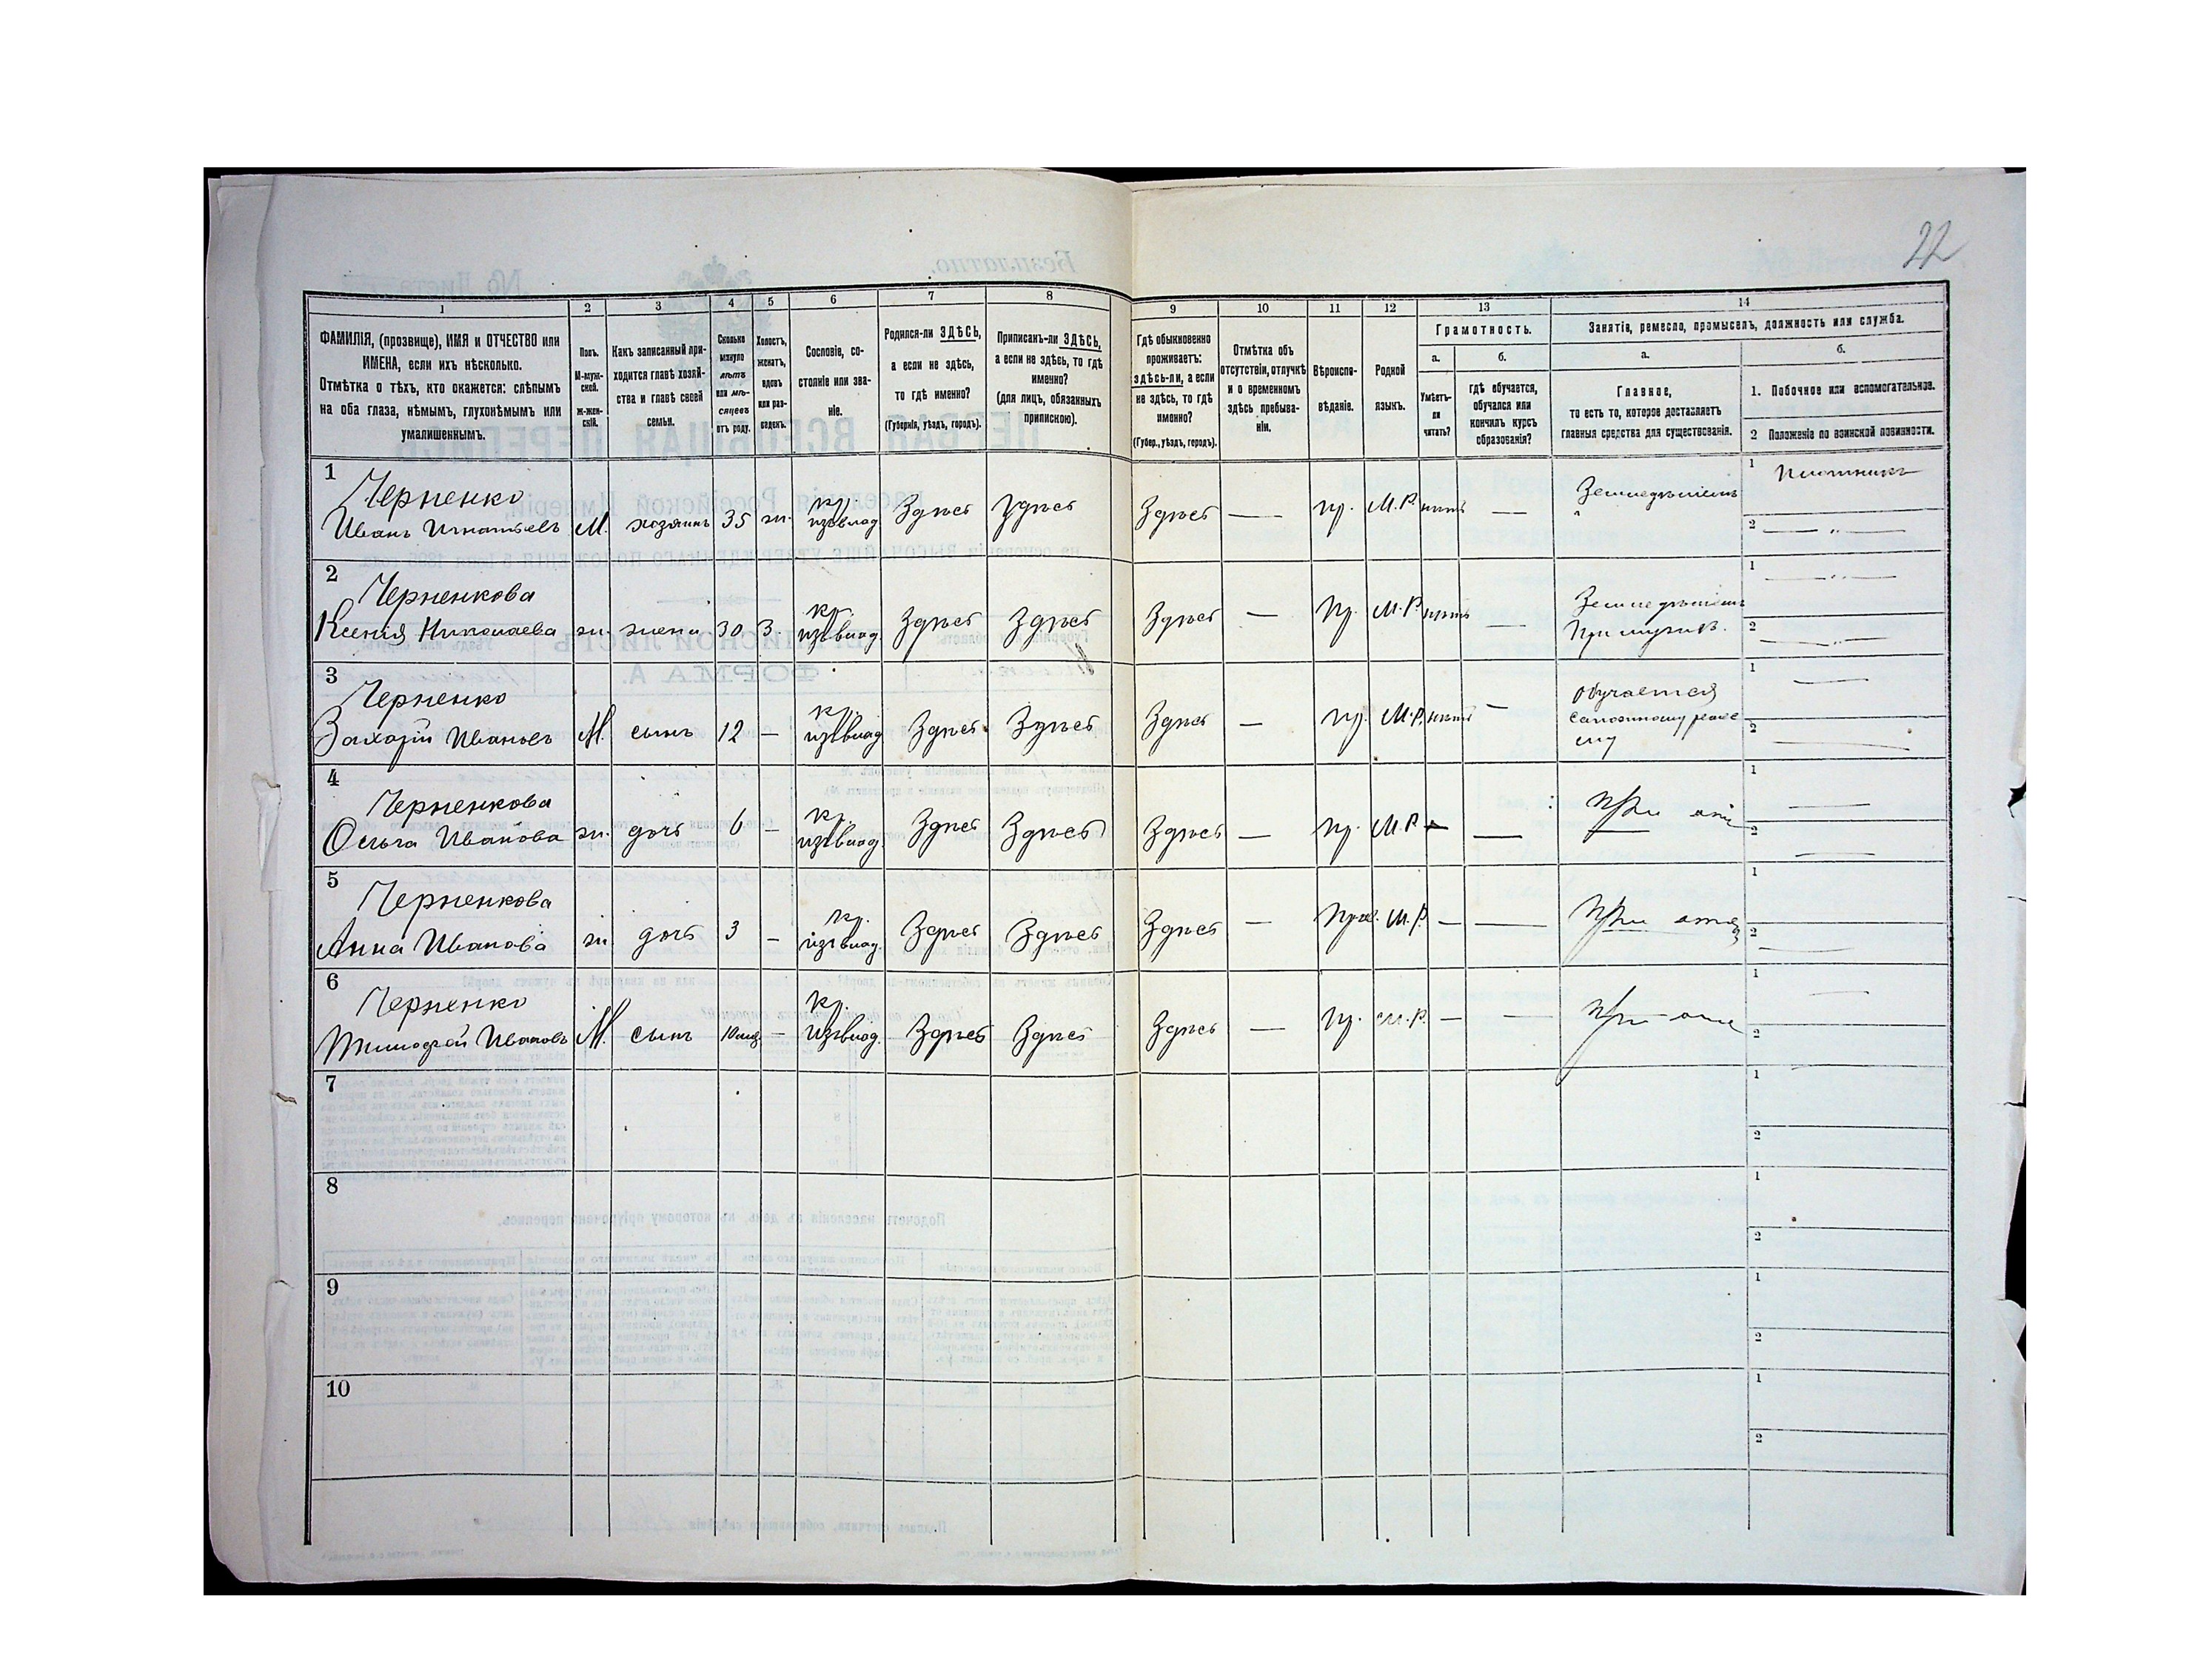 22
1 2 3 4 5 6 7 8 9 10 11 12 13 14
ФАМИЛІЯ, (прозвище), ИМЯ и ОТЧЕСТВО или
ИМЕНА, если ихъ нѣсколько.
Отмѣтка о тѣхъ, кто окажется: слѣпымъ
на оба глаза, нѣмымъ, глухонѣмымъ или
умалишеннымъ.
Полъ.
М-муж-
ской.
Ж-жен-
скій.
Какъ записанный при-
ходится главѣ хозяй-
ства и главѣ своей
семьи.
Сколько
минуло
лѣтъ
или мѣ-
сяцевъ
отъ роду.
Холостъ,
женатъ,
вдовъ
или раз-
веденъ.
Сословіе, со-
стояніе или зва-
ніе.
Родился-ли ЗДѢСЬ,
а если не здѣсь,
то гдѣ именно?
(Губернія, уѣздъ, городъ).
Приписанъ-ли ЗДѢСЬ,
а если не здѣсь, то гдѣ
именно?
(для лицъ, обязанныхъ
припискою).
Гдѣ обыкновенно
проживаетъ:
здѣсь-ли, а если
не здѣсь, то гдѣ
именно?
(Губер., уѣздъ, городъ).
Отмѣтка объ
отсутствіи, отлучкѣ
и о временномъ
здѣсь пребыва-
ніи.
Вѣроиспо-
вѣданіе.
Родной
языкъ.
Грамотность.
а.
Умѣетъ-
ли
читать?
б.
гдѣ обучается,
обучался или
кончилъ курсъ
образованія?
Занятія, ремесло, промыселъ, должность или служба.
а.
Главное,
то есть то, которое доставляетъ
главныя средства для существованія.
б.
1. Побочное или вспомогательное.
2 Положеніе по воинской повинности.
1 Черненко
Иванъ Игнатьевъ М. хозяинъ 35 ж. кр. изъ влад. Здѣсь Здѣсь Здѣсь — пр. М.Р. нѣтъ — Земледѣлецъ 1 Плотникъ
2 — „ —
2 Черненкова
Ксенія Николаева ж. жена 30 З. кр. изъ влад. Здѣсь Здѣсь Здѣсь — пр. М.Р. нѣтъ — При мужѣ. 1 — „ —
2 — „ —
3 Черненко
Захарій Ивановъ М. сынъ 12 — кр. изъ влад. Здѣсь Здѣсь Здѣсь — пр. М.Р. нѣтъ — обучается
сапожному реме
слу 1 —
2 —
4 Черненкова
Ольга Иванова ж. дочь 6 — кр. изъ влад. Здѣсь Здѣсь Здѣсь — пр. М.Р. — — При 1 —
2 —
5 Черненкова
Анна Иванова ж. дочь 3 — кр. изъ влад. Здѣсь Здѣсь Здѣсь — прав. М.Р. — — При отцѣ 1
2 —
6 Черненко
Тимофей Ивановъ М. сынъ 10 мѣс. — кр. изъ влад. Здѣсь Здѣсь Здѣсь — пр. М.Р. — — При отцѣ 1 —
2
7 1
2
8 1
2
9 1
2
10 1
2